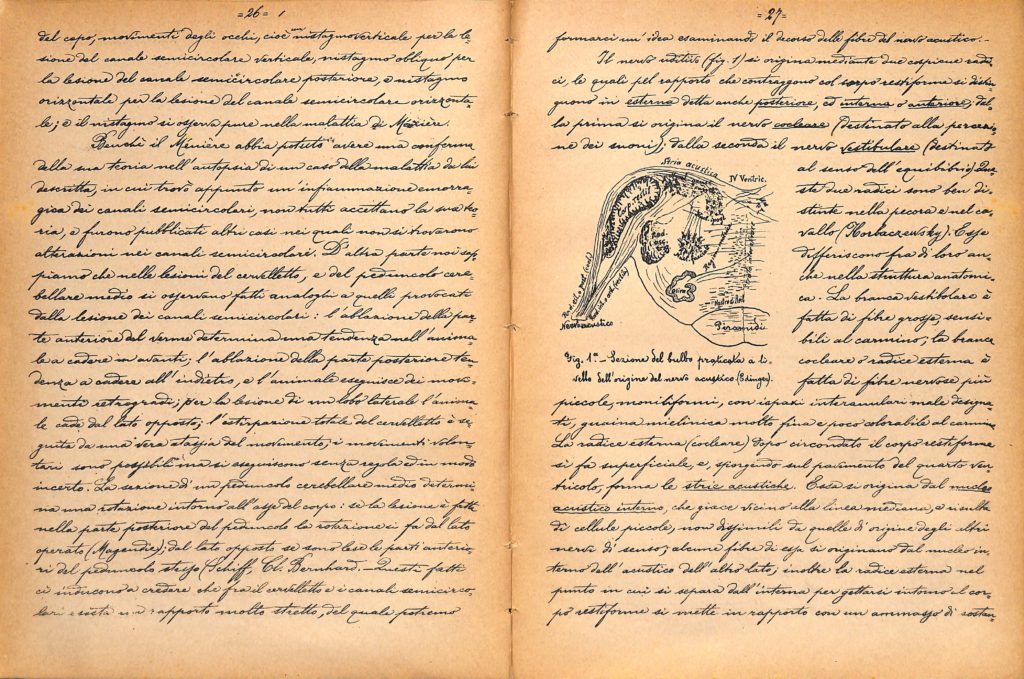 =26=
del capo, movimenti degli occhi, cioè con nistagmo verticale per la le-
sione del canale semicircolare verticale, nistagmo obliquo per
la lesione del canale semicircolare posteriore, o nistagmo
orizzontale per la lesione del canale semicircolare orizzonta-
le; e il nistagmo si osserva pure nella malattia di Ménière.
Benchè il Ménière abbia potuto avere una conferma
della sua teoria nell'autopsia di un caso della malattia da lui
descritta, in cui trovò appunto un'infiammazione emorra-
gica dei canali semicircolari, non tutti accettano la sua teo-
ria, e furono pubblicati altri casi nei quali non si trovarono
alterazioni nei canali semicircolari. D'altra parte noi sap-
piamo che nelle lesioni del cervelletto, e del peduncolo cere-
bellare medio si osservano fatti analoghi a quelli provocati
dalla lesione dei canali semicircolari: l'ablazione della par-
te anteriore del verme determina una tendenza nell'anima-
le a cadere in avanti; l'ablazione della parte posteriore ten-
denza a cadere all'indietro, e l'animale eseguisce dei movi-
menti retrogradi; per la lesione di un lobo laterale l'anima-
le cade dal lato opposto; l'estirpazione totale del cervelletto è se-
guita da una vera atassia del movimento; i movimenti volon-
tari sono possibili ma si eseguiscono senza regola ed in modo
incerto. La sezione d'un peduncolo cerebellare medio determi-
na una rotazione intorno all'asse del corpo: se la lesione è fatta
nella parte posteriore del peduncolo la rotazione si fa dal lato
operato (Magendie); dal lato opposto se sono lese le parti anterio-
ri del peduncolo stesso (Schiff, Cl. Bernhard. - Questi fatti
ci inducono a credere che fra il cervelletto e i canali semicirco-
lari esista un rapporto molto stretto, del quale potremo
=27=
formarci un'idea esaminando il decorso delle fibre del nervo acustico.-
Il nervo uditivo (fig. 1) si origina mediante due cospicue radi-
ci, le quali pel rapporto che contraggono col corpo restiforme si distin-
guono in esterna detta anche posteriore, ed interna o anteriore; dal-
la prima si origina il nervo cocleare (destinato alla percezio-
ne dei suoni); dalla seconda il nervo vestibulare (destinato
al senso dell'equilibrio). Que-
ste due radici sono ben di-
stinte nella pecora e nel ca-
vallo (Horbaczewsky). Esse
differiscono fra di loro an-
che nella struttura anatomi-
ca. La branca vestibolare è
fatta di fibre grosse, sensi-
bili al carminio; la branca
cocleare o radice esterna è
fatta di fibre nervose più
Stria acustica
IV Ventric.
Corpo restif.
Rad. asc.
Raf
oliva
Nervo acustico
Piramidi
Fig. 1ª - Sezione del bulbo praticata a li-
vello dell'origine del nervo acustico (Edinger).
piccole, moniliformi, con ispazi interanulari male designa-
ti, guaina mielinica molto fina e poco colorabile al carminio.
La radice esterna (cocleare) dopo circondato il corpo restiforme
si fa superficiale, e, sporgendo sul pavimento del quarto ven-
tricolo, forma le strie acustiche. Essa si origina dal nucleo
acustico interno, che giace vicino alla linea mediana, e risulta
di cellule piccole, non dissimili da quelle d'origine degli altri
nervi di senso; alcune fibre di essa si originano dal nucleo in-
terno dell'acustico dell'altro lato; inoltre la radice esterna nel
punto in cui si separa dall'interna per gettarsi intorno al cor-
po restiforme si mette in rapporto con un ammasso di sostan-